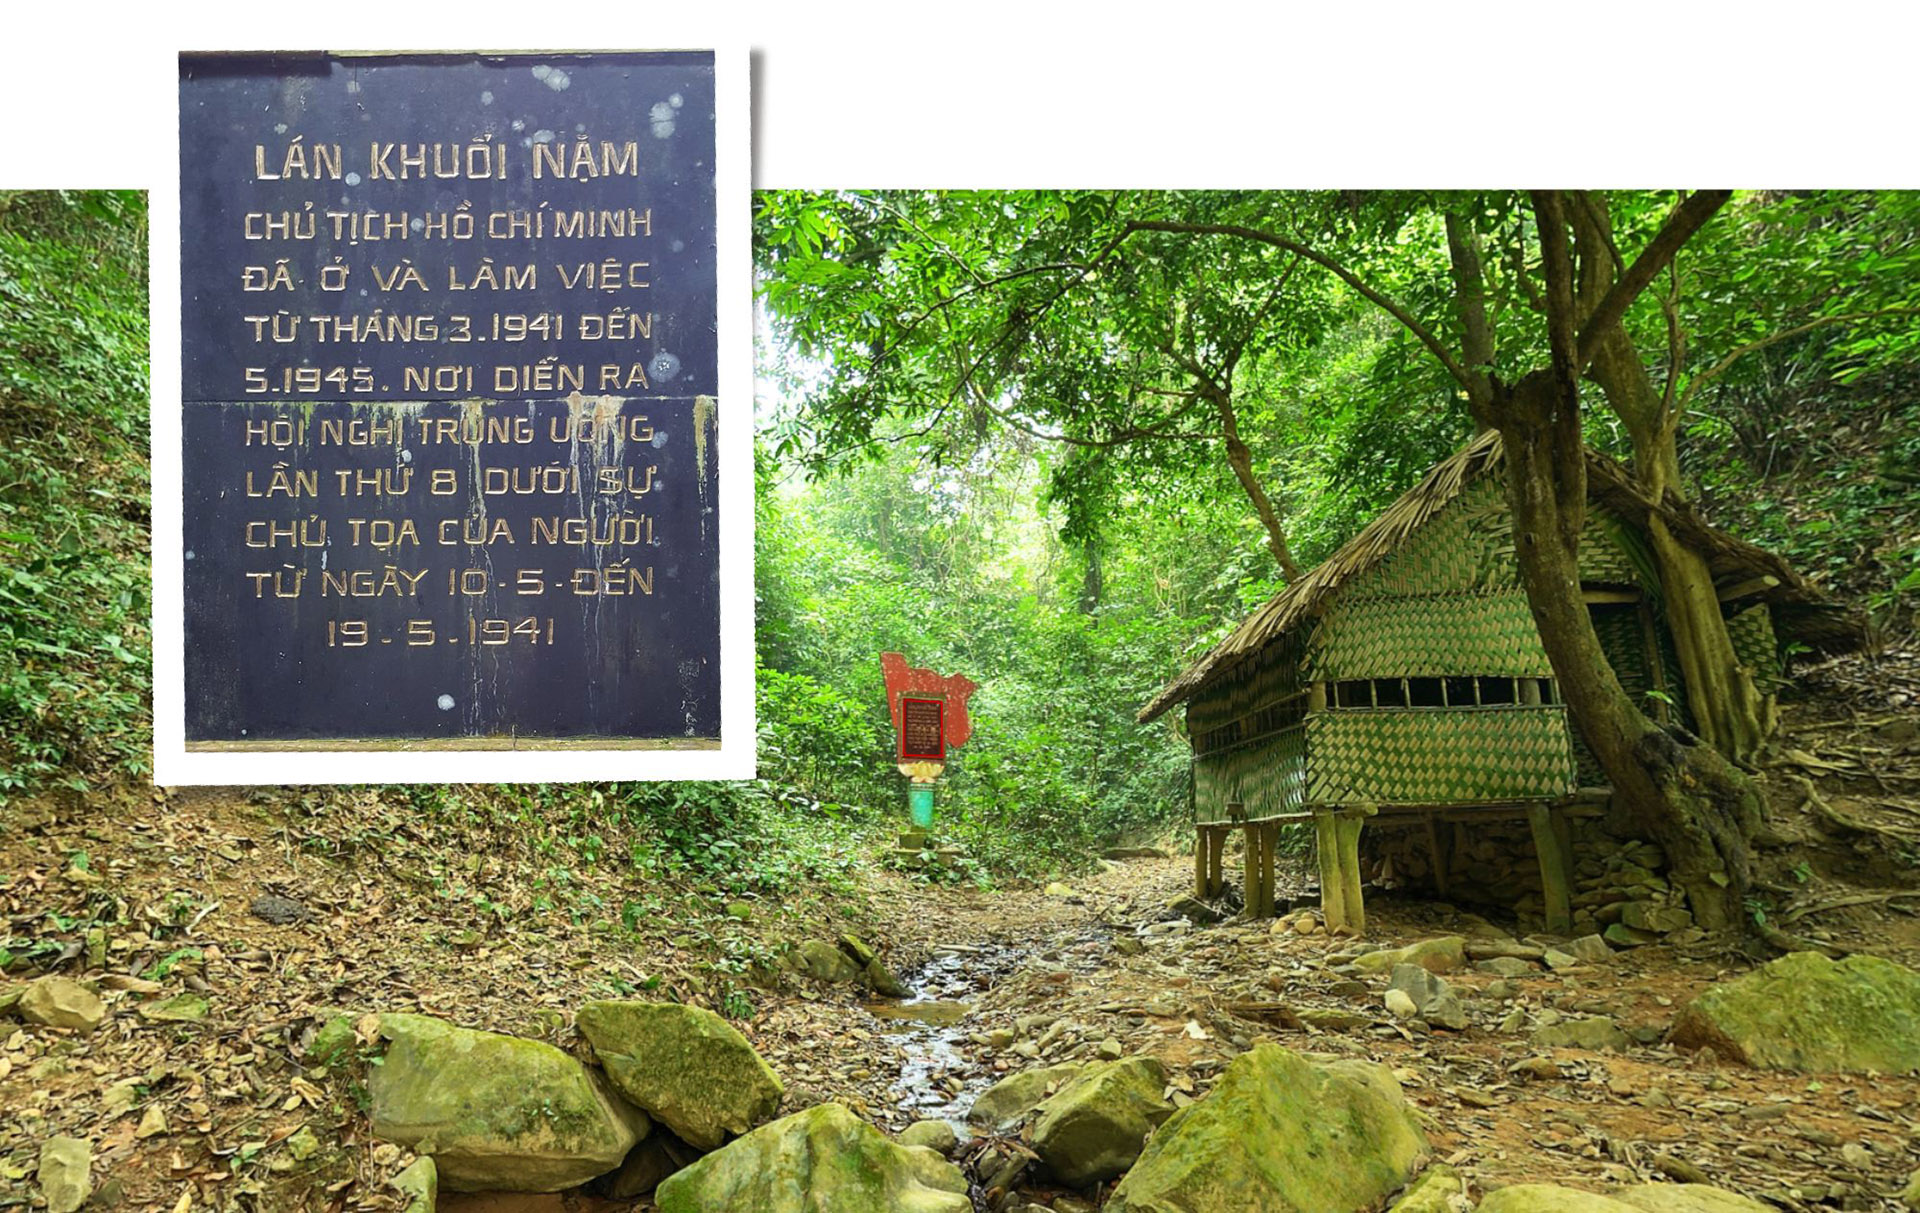 LÁN KHUỔI NẶM
CHỦ TỊCH HỒ CHÍ MINH
ĐÃ Ở VÀ LÀM VIỆC
TỪ THÁNG 3.1941 ĐẾN
5.1945. NƠI DIỄN RA
HỘI NGHỊ TRUNG ƯƠNG
LẦN THỨ 8 DƯỚI SỰ
CHỦ TỌA CỦA NGƯỜI
TỪ NGÀY 10-5-ĐẾN
19-5-1941